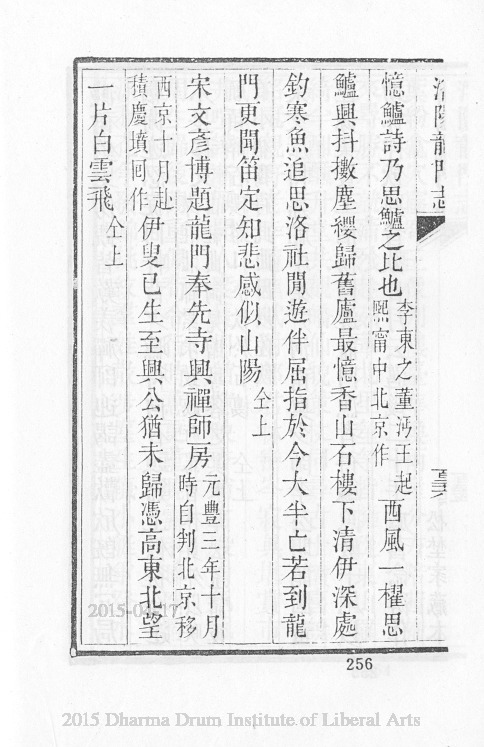 洛陽龍門志
憶鱸詩乃思鱸之比也李東之董沔王起熙甯中北京作西風一櫂思
鱸興抖擻塵纓歸舊廬最憶香山石樓下清伊深處
釣寒魚追思洛社閒遊伴屈指於今大半亡若到龍
門更聞笛定知悲感似山陽仝上
宋文彥博題龍門奉先寺興禪師房元豐三年十月時自判北京移
西京十月赴積慶墳回作伊叟已生至興公猶未歸憑高東北望
一片白雲飛仝上
256
2015-04-17
2015 Dharma Drum Institute of Liberal Arts